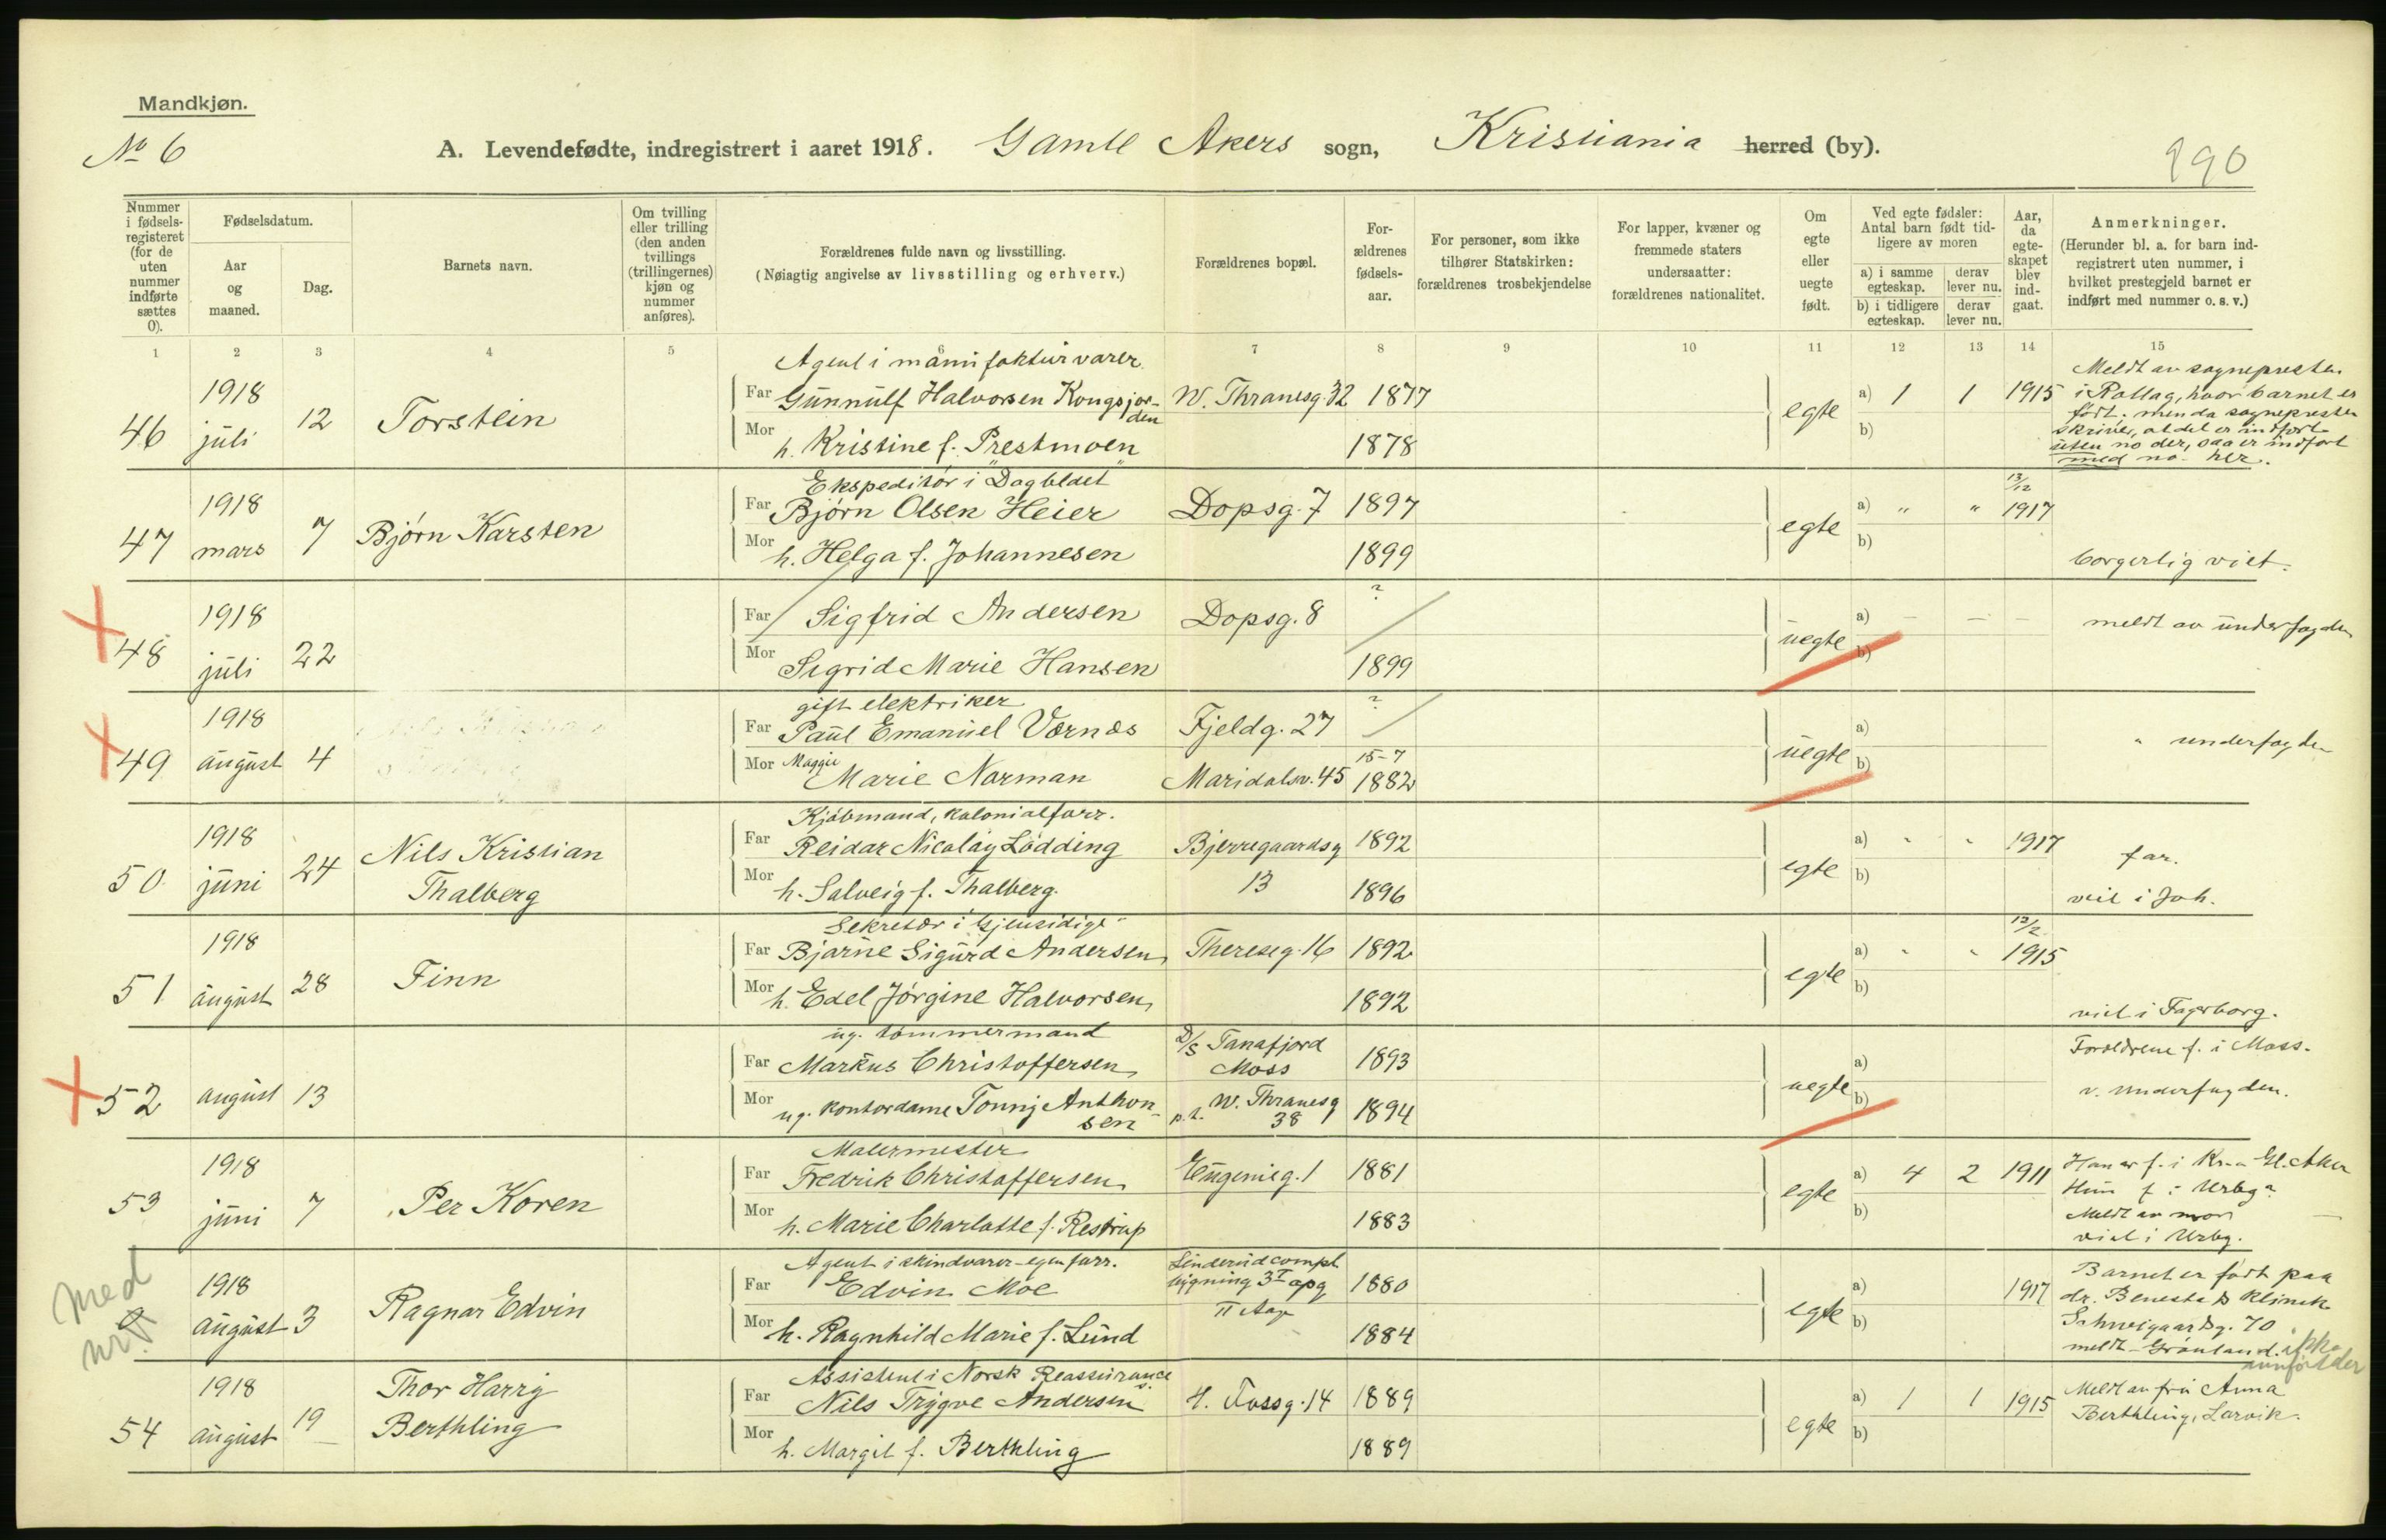 Mandkjøn.
No 6
A. Levendefødte, indregistrert i aaret 1918. Gamle Akers sogn, Kristiania herred (by).
190
Nummer i fødsels-registeret (for de uten nummer indførte sættes 0).
Fødselsdatum.
Aar og maaned.
Dag.
Barnets navn.
Om tvilling eller trilling (den anden tvillings (trillingernes) kjøn og nummer anføres).
Forældrenes fulde navn og livsstilling.
(Nøiagtig angivelse av livsstilling og erhverv.)
Forældrenes bopæl.
For-ældrenes fødsels-aar.
For personer, som ikke tilhører Statskirken: forældrenes trosbekjendelse
For lapper, kvæner og fremmede staters undersaatter: forældrenes nationalitet.
Om egte eller uegte født.
Ved egte fødsler: Antal barn født tid-ligere av moren
a) i samme egteskap. derav lever nu.
b) i tidligere egteskap. derav lever nu.
Aar, da egte-skapet blev ind-gaat.
Anmerkninger.
(Herunder bl. a. for barn ind-registrert uten nummer, i hvilket prestegjeld barnet er indført med nummer o. s. v.)
1 2 3 4 5 6 7 8 9 10 11 12 13 14 15
Agent i manifakturvarer
46 1918 juli 12 Torstein
Far Gunnulf Halvorsen Kongsjor-den W. Thranesg. 32 1877
Mor h. Kristine f. Prestmoen 1878
egte a) 1 1 1915 b)
Meldt av sognepresten
i Rollag, hvor barnet er
født. men da sognepresten
skriver, at det er indført
uten no der, saa er indført
med no her.
Ekspeditør i "Dagbladet"
47 1918 mars 7 Bjørn Karsten
Far Bjørn Olsen Heier Dopsg. 7 1897
Mor h. Helga f. Johannesen 1899
egte a) " " 13/12 1917 b)
borgerlig viet.
48 1918 juli 22
Far Sigfrid Andersen Dopsg. 8 ?
Mor Sigrid Marie Hansen 1899
uegte a) - - - b)
meldt av underfogden
gift elektriker
49 1918 august 4
Far Paul Emanuel Værnæs Fjeldg. 27 ?
Mor Maggie Marie Norman Maridalsv. 45 15-7 1882
uegte a) b)
" underfogden
Kjøbmand, kolonialforr.
50 1918 juni 24 Nils Kristian Thalberg
Far Reidar Nicolay Lødding Bjerregaardsg 13 1892
Mor h. Salveig f. Thalberg 1896
egte a) " " 1917 b)
far.
viet i Joh.
Sekretær i "Gjensidige"
51 1918 august 28 Finn
Far Bjarne Sigurd Andersen Thereseg. 16 1892
Mor h. Edel Jørgine Halvorsen 1892
egte a) " " 12/2 1915 b)
viet i Fagerborg.
ug. tømmermand
52 august 13
Far Markus Christoffersen D/S Tanafjord Moss 1893
Mor ug. kontordame Tonny Anthon-sen p.t. W. Thranesg 38 1894
uegte a) b)
Forældrene f. i Moss.
v. underfogden.
Malermester
53 1918 juni 7 Per Koren
Far Fredrik Christoffersen Eugenieg. 1 1881
Mor h. Marie Charlotte f. Restrup 1883
egte a) 4 2 1911 b)
Han er f. i Kr.a Gl. Aker
Hun f. i Urbg.
Meldt av mor
viet i Urbg.
Agent i skindvarer - egen forr.
med nr.
0 1918 august 3 Ragnar Edvin
Far Edvin Moe Linderudcompl. bygning 3 opg II 1880
Mor h. Ragnhild Marie f. Lund 1884
egte a) 1917 b)
Barnet er født paa
dr. klinik
Schweigaardsg. 70
meldt Grønland. ikke
annført der
Assistent i Norsk Reassurance
54 1918 august 19 Thor Harry Berthling
Far Nils Trygve Andersen H. Fossg. 14 1889
Mor h. Margit f. Berthling 1889
egte a) 1 1 1915 b)
Meldt av fru Anna
Berthling, Larvik.